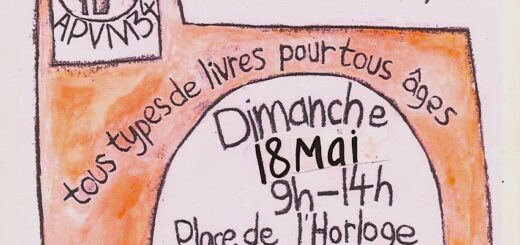 APVM34
tous types de livres pour tous âges
Dimanche
18 Mai
9h-14h
Place de l'Horloge